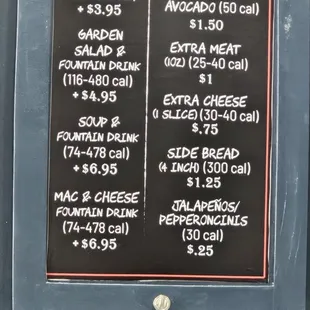 + $3.95
GARDEN
SALAD &
FOUNTAIN DRINK
(116-480 cal)
+ $4.95
SOUP &
FOUNTAIN DRINK
(74-478 cal)
+ $6.95
MAC & CHEESE
FOUNTAIN DRINK
(74-478 cal)
+ $6.95
AVOCADO (50 cal)
$1.50
EXTRA MEAT
(1OZ) (25-40 cal)
$1
EXTRA CHEESE
(1 SLICE) (30-40 cal)
$.75
SIDE BREAD
(4 INCH) (300 cal)
$1.25
JALAPEÑOS/
PEPPERONCINIS
(30 cal)
$.25